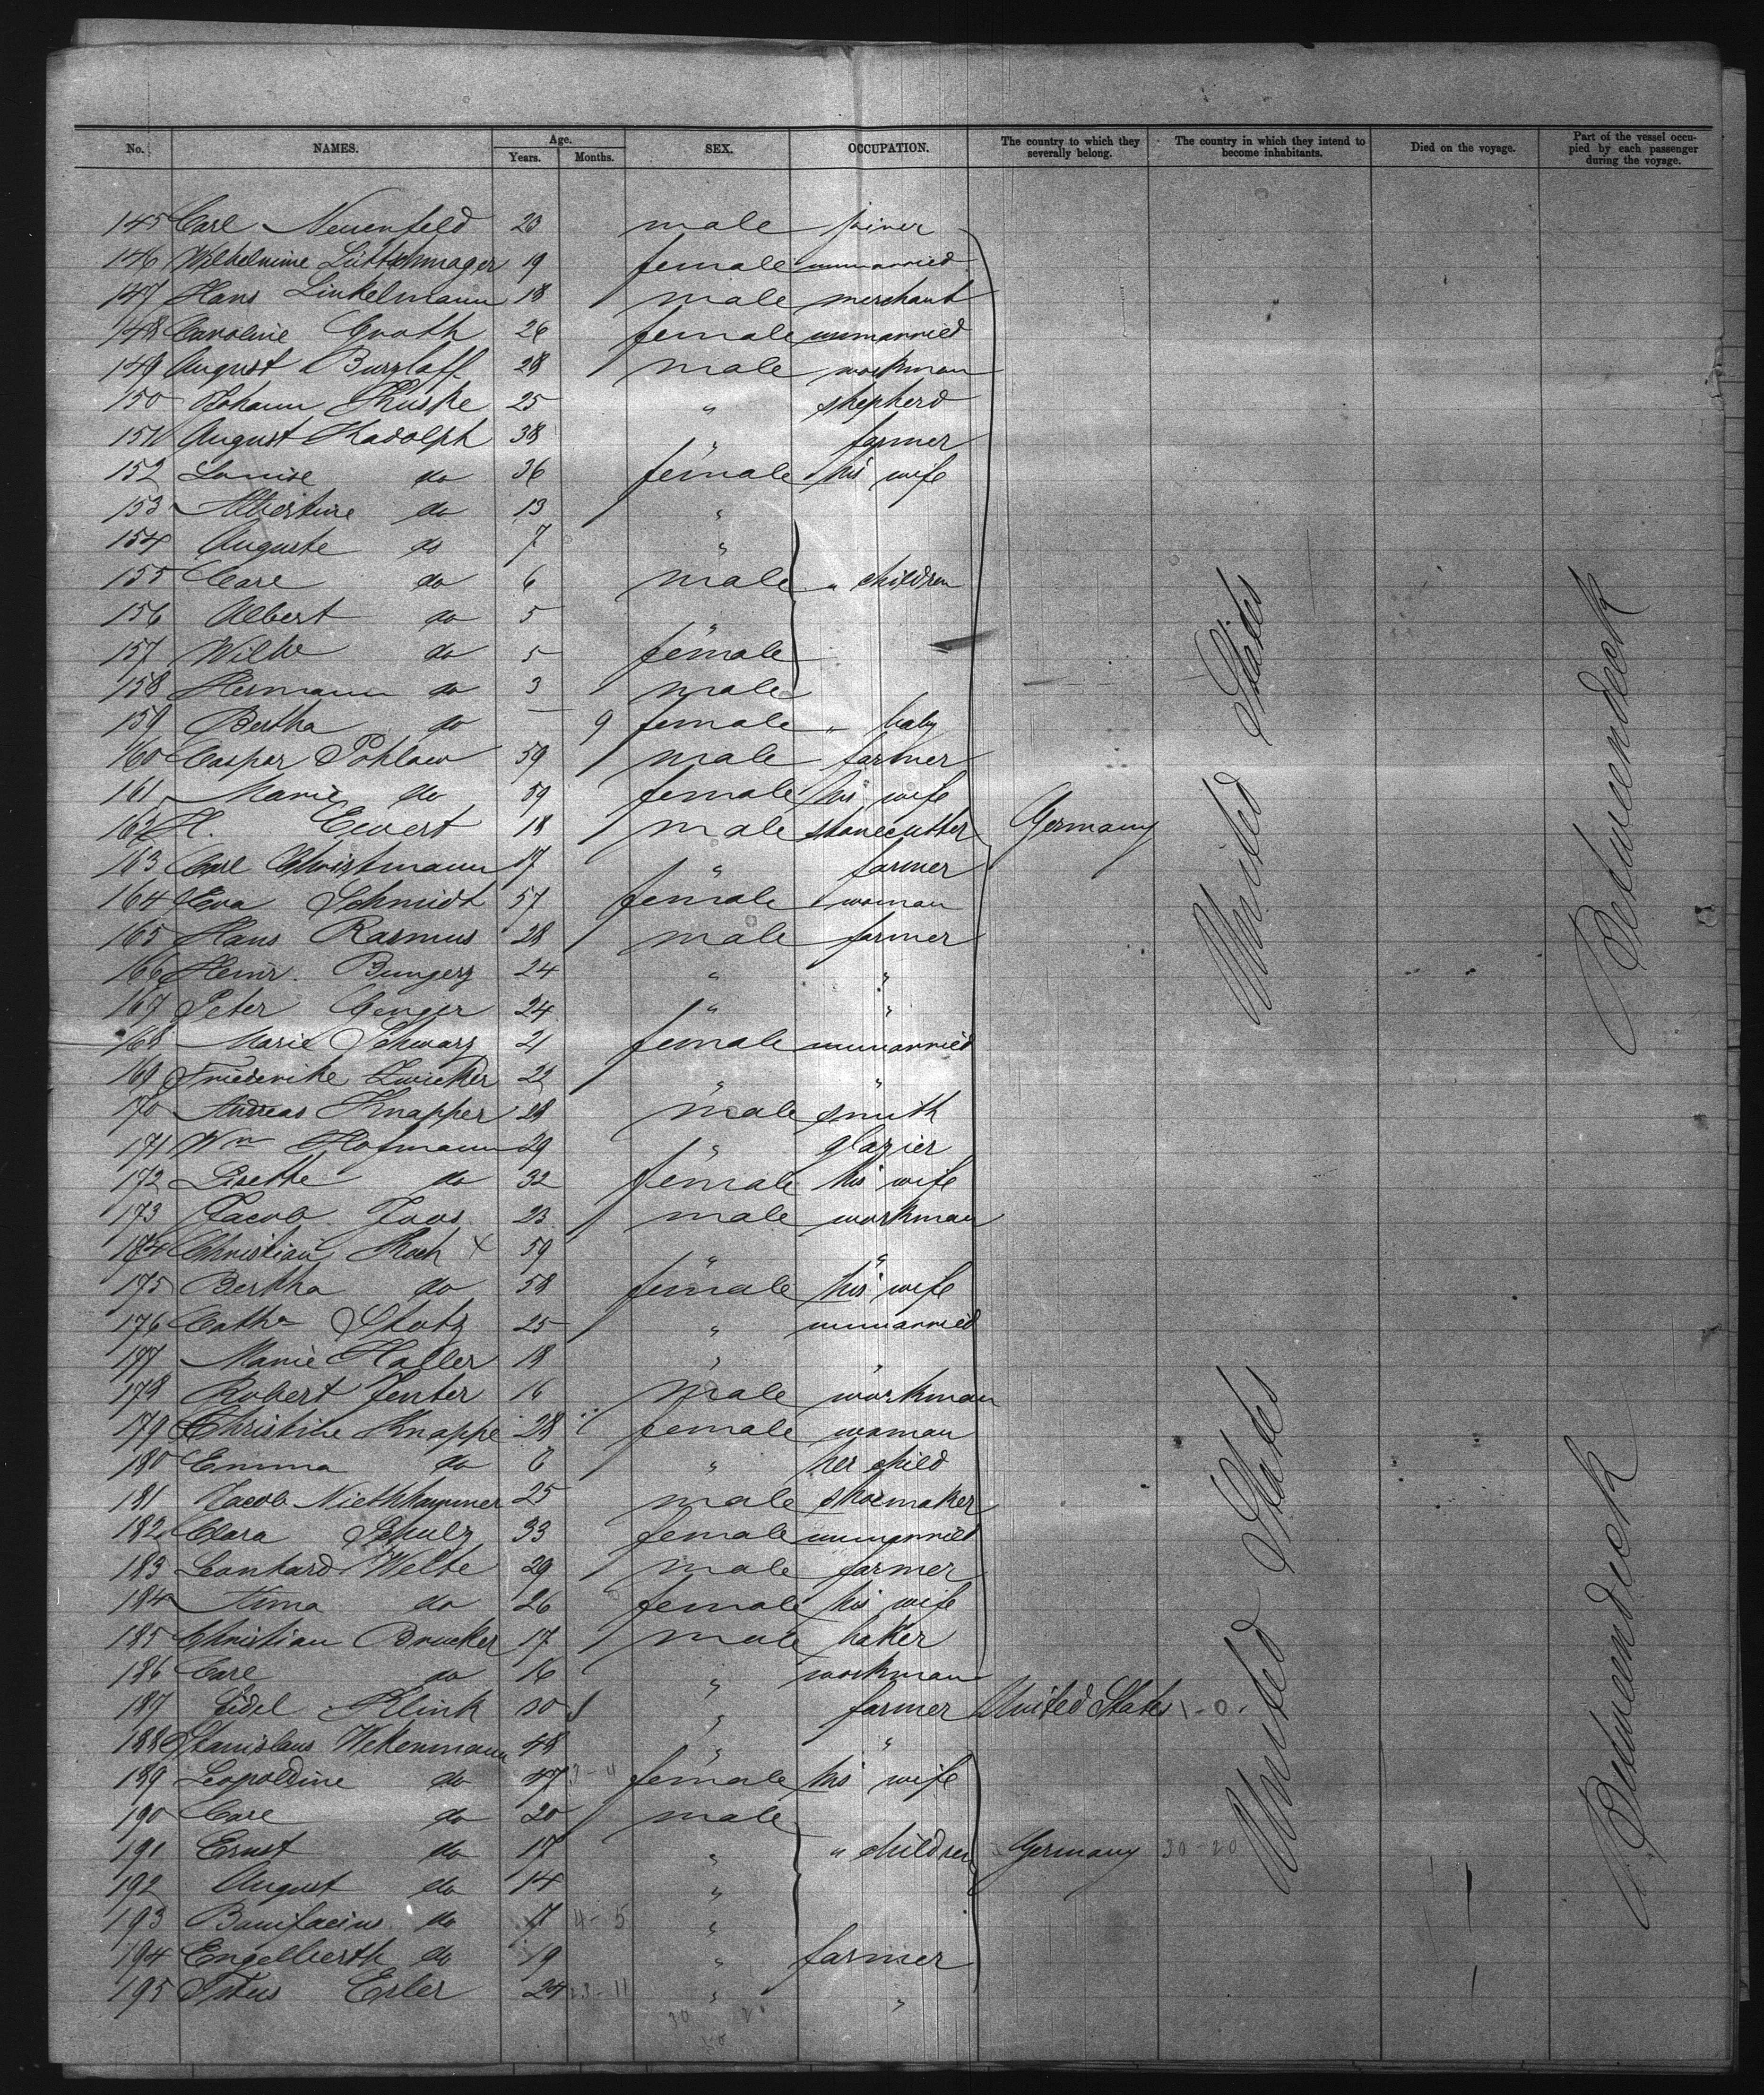 No. NAMES. Age. Years. Months. SEX. OCCUPATION. The country to which they severally belong. The country in which they intend to become inhabitants. Died on the voyage. Part of the vessel occupied by each passenger during the voyage.
145 Carl Neuenfeld 23 male joiner
146 Wilhelmine Lüttschwager 19 female unmarried
147 Hans Linkelmann 18 male merchant
148 Caroline Groth 26 female unmarried
149 August Burzlaff 28 male workman
150 Johann Kuske 25 " shepherd
151 August Radolph 38 " farmer
152 Louise do 36 female his wife
153 Albertine do 13 "
154 Auguste do 7 "
155 Carl do 6 male " children
156 Albert do 5 "
157 Wilhe do 5 female
158 Hermann do 3 male
159 Bertha do — 9 female " baby
160 Caspar Pohlow 59 male farmer
161 Marie do 59 female his wife
162 H. Ewert 18 male stonecutter Germany
163 Carl Christmann 17 " farmer
164 Eva Schmidt 57 female woman
165 Hans Rasmus 28 male farmer
166 Heinr. Bungerz 24 " "
167 Peter Genger 24 " "
168 Marie Schwarz 21 female unmarried
169 Friederike Zwicker 22 " "
170 Andreas Knapper 28 male smith
171 Wm Hofmann 29 " glazier
172 Lisette do 32 female his wife
173 Jacob Joos 23 male workman
174 Christian Koch x 59 " "
175 Bertha do 58 female his wife
176 Cathn Stotz 25 " unmarried
177 Marie Haller 18 " "
178 Robert Fenter 16 male workman
179 Christine Knappe 28 female woman
180 Emma do 6 " her child
181 Jacob Niethhammer 25 male shoemaker
182 Clara Schulz 33 female unmarried
183 Leonhard Welte 29 male farmer
184 Anna do 26 female his wife
185 Christian Brucker 17 male baker
186 Carl do 16 " workman
187 Fidel Klink 30 " farmer United States 1-0
188 Stanislaus Wekenmann 48 " "
189 Leopoldine do 47 3-4 female his wife
190 Carl do 20 male
191 Ernst do 17 " " children Germany 30-20
192 August do 14 "
193 Bonifacius do 17 4-5 "
194 Engelberth do 19 " farmer
195 Titus Erler 24 23-11 " "
United States
United States
Betweendeck
Betweendeck